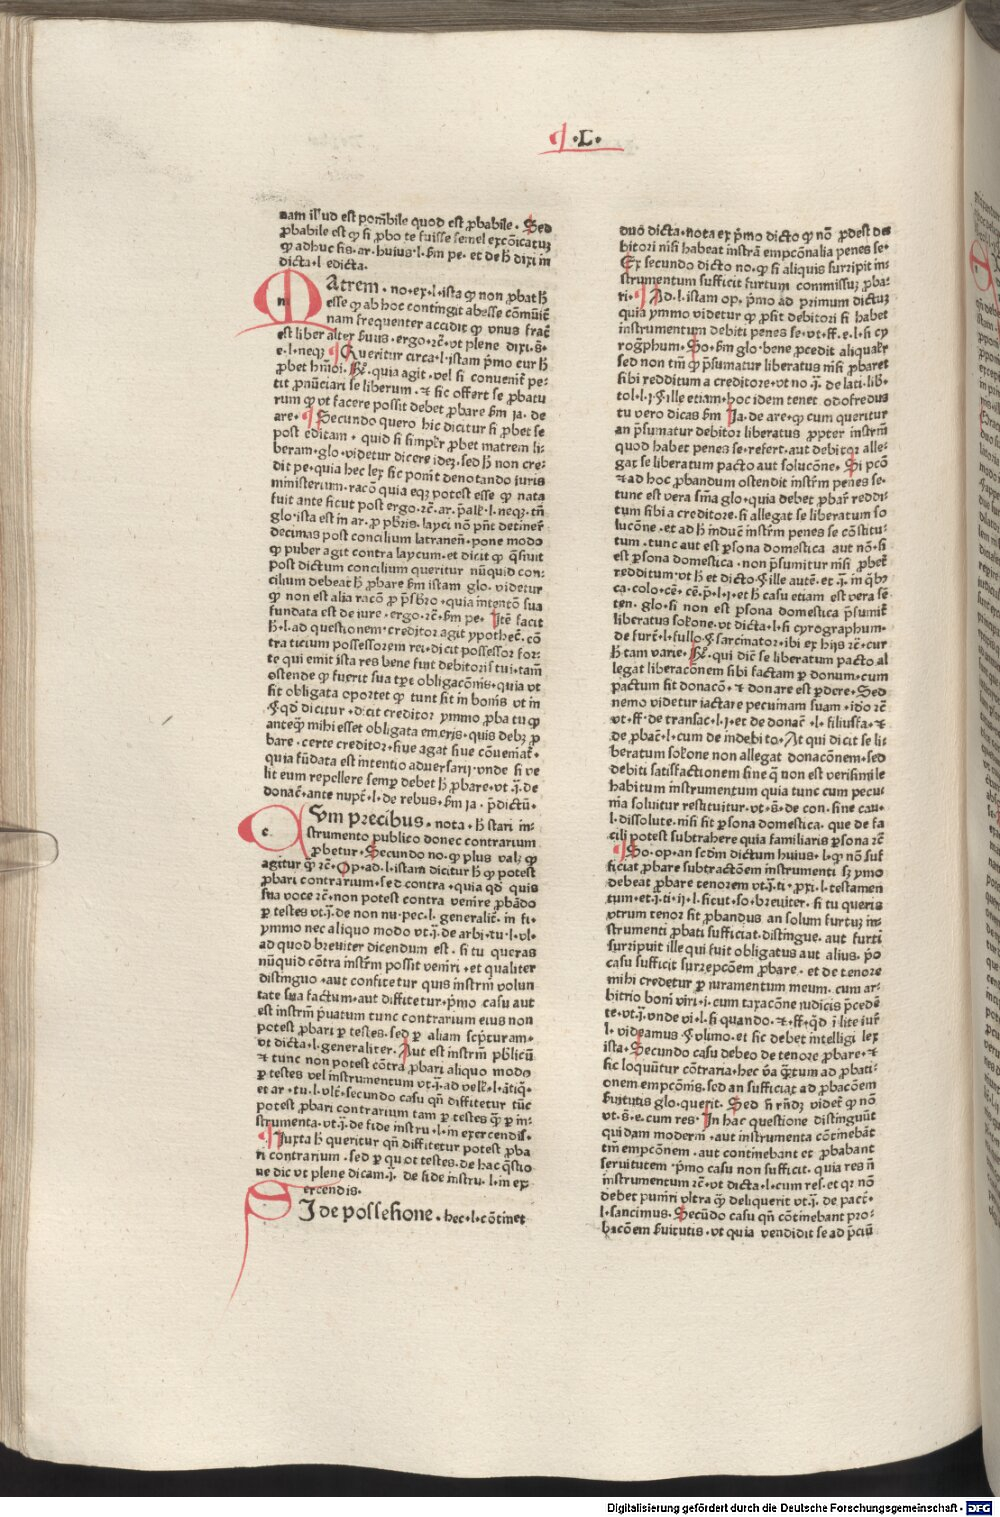 ·L·
nam illud est pom̄bile quod est ꝓbabile · Sed
ꝓbabile est ꝙ si ꝓbo te fuisse semel excōicatuꝫ
ꝙ adhuc sis · ar · huius · l · s̄m pe · et de h̄ dixi in
dicta · l edicta ·
Atrem · no · ex · l · ista ꝙ non ꝓbat h̄
esse ꝙ ab hoc contingit abesse cōmūit̄
nam frequenter accidit ꝙ vnus frat̄
est liber alter s̄uus · ergo · rc̄ · vt plene dixi · s̄ ·
e · l · neqꝫ Queritur circa · l · istam p̄mo cur h̄
ꝓbet hm̄oi · quia agit · vel si conuenit̄ pe-
tit ꝓnūciari se liberum · et sic offert se ꝓbatu
rum ꝙ vt facere possit debet ꝓbare s̄m ja · de
are · Secundo quero hic dicitur si ꝓbet se
post editam · quid si simpl'r ꝓbet matrem li-
beram · glo · videtur dicere ideꝫ · sed h̄ non cre-
dit pe · quia hec lex sic ponit̄ denotando iuris
ministerium · racō quia eqꝫ potest esse ꝙ nata
fuit ante sicut post ergo · rc̄ · ar · p̄all' · l · neqꝫ · tn̄
glo · ista est in ar · ꝓ pb̄ris · layci nō pn̄t detiner̄
decimas post concilium latranen̄ · pone modo
ꝙ puber agit contra laycum · et dicit ꝙ q̄siuit
post dictum concilium queritur nūquid con-
cilium debeat h̄ ꝓbare s̄m istam glo · videtur
ꝙ non est alia racō ꝓ p̄sb̄ro · quia intentō sua
fundata est de iure · ergo · rc̄ · s̄m pe · Itē facit
h̄ · l · ad questionem · creditor agit ypothec̄ · cō
tra ticium possessorem rei · dicit possessor for-
te qui emit ista res bene fuit debitoris tui · tam̄
ostende ꝙ fuerit sua tꝑe obligacōnis · quia vt
sit obligata oportet ꝙ tunt sit in bonis vt in
§ qd̄ dicitur · dicit creditor ymmo ꝓba tu ꝙ
anteq̄ mihi esset obligata emeris · quis debꝫ ꝓ
bare · certe creditor · siue agat siue cōuemat̄ ·
quia fūdata est intentio aduersarij · vnde si ve
lit eum repellere semꝑ debet h̄ ꝓbare · vt · j̄ · de
donac̄ · ante nupt̄ · l · de rebus · s̄m ja · p̄dictū ·
Vm precibus · nota · h̄ stari in-
strumento publico donec contrarium
ꝓbetur · Secundo no · ꝙ plus valꝫ ꝙ
agitur q̄ rc̄ · Op · ad · l · istam dicitur h̄ ꝙ potest
ꝓbari contrarium · sed contra · quia qd̄ quis
sua voce rc̄ · non potest contra venire ꝓbādo
ꝑ testes vt · j̄ · de non nu · pec · l · generalit̄ · in fi ·
ymmo nec aliquo modo vt · j̄ · de arbi · tu · l · vl ·
ad quod breuiter dicendum est · si tu queras
nūquid cōtra instr̄m possit veniri · et qualiter
distinguo · aut confitetur quis instr̄m volun
tate sua factum · aut diffitetur · p̄mo casu aut
est instr̄m p̄uatum tunc contrarium eius non
potest ꝓbari ꝑ testes · sed ꝑ aliam scpt̄uram ·
vt dicta · l · generaliter · Aut est instr̄m pb̄licū
et tunc non potest cōtra ꝓbari aliquo modo
ꝑ testes vel instrumentum vt · j̄ · ad velt̄ · l · ātiq̄ ·
et ar · tu · l · vlt̄ · secundo casu qn̄ diffitetur tūc
potest ꝓbari contrarium tam ꝑ testes q̄ ꝑ in-
strumenta · vt · j̄ · de fide instru · l · in exercendis ·
Iuxta h̄ queritur qn̄ diffitetur potest ꝓba
ri contrarium · sed ꝑ quot testes · de hac q̄stio
ne dic vt plene dicam · j̄ · de fide instru · l · in ex
ercendis ·
I de possessione · hec · l · cōtinet
duo dicta · nota ex p̄mo dicto ꝙ nō ꝓdest de
bitori nisi habeat instrā empcōnalia penes se ·
Ex secundo dicto no · ꝙ si aliquis surripit in-
strumentum sufficit furtum commissuꝫ ꝓba-
ri · Ad · l · istam op · p̄mo ad primum dictuꝫ
quia ymmo videtur ꝙ ꝓsit debitori si habet
instrumentum debiti penes se · vt · ff · e · l · si cy
rogr̄phum · So · s̄m glo · bene ꝓcedit aliqual'r
sed non tm̄ ꝙ p̄sumatur liberatus nisi ꝓbaret
sibi redditum a creditore · vt no · j̄ · de lati · lib̄ ·
tol · l · j · § ille etiam · hoc idem tenet odofredus
tu vero dicas s̄m Ja · de are · ꝙ cum queritur
an p̄sumatur debitor liberatus ꝓpter instr̄m
quod habet penes se · refert · aut debitor alle-
gat se liberatum pacto aut solucōne · Si pcō
et ad hoc ꝓbandum ostendit instr̄m penes se ·
tunc est vera sn̄a glo · quia debet ꝓbar̄ reddi-
tum sibi a creditore · si allegat se liberatum so
lucōne · et ad h̄ induc̄ instr̄m penes se cōstitu-
tum · tunc aut est ꝑsona domestica aut nō · si
est ꝑsona domestica · non p̄sumitur nisi ꝓbet̄
redditum · vt h̄ et dicto § ille autē · et · j̄ · in q̄b'
ca · colo · cē · cē · p̄ · l · j · et h̄ casu etiam est vera sē
ten · glo · si non est ꝑsona domestica p̄sumit̄
liberatus sol'one · vt dicta · l · si cyrographum ·
de furt̄ · l · fullo § sarcinator · ibi ex hijs rc̄ · cur
h̄ tam varie · qui dic̄ se liberatum pacto al
legat liberacōnem sibi factam ꝑ donum · cum
pactum sit donacō · et donare est ꝑdere · Sed
nemo videtur iactare pecuniam suam · ido rc̄
vt · ff · de transac · l · j · et de donac̄ · l · filiusfa · et
de ꝓbac̄ · l · cum de indebito · At qui dicit se li-
beratum sol'one non allegat donacōnem · sed
debiti satisfactionem sine q̄ non est verisimile
habitum instrumentum quia tunc cum pecu-
nia soluitur restituitur · vt · s̄ · de con · sine cau ·
l · dissolute · nisi sit ꝑsona domestica · que de fa
cili potest subtrahere quia familiaris ꝑsona rc̄
So · op · an sc̄dm dictum huius · l · ꝙ nō suf
ficiat ꝓbare subtractōem instrumenti sꝫ ymo
debeat ꝓbare tenorem vt · j̄ · ti · ꝓxi · l · testamen
tum · et · j̄ · ti · ij · l · sicut · so · breuiter · si tu queris
vtrum tenor sit ꝓbandus an solum furtuꝫ in-
strumenti ꝓbati sufficiat · distingue · aut furti
surripuit ille qui fuit obligatus aut alius · p̄o
casu sufficit surrepcōem ꝓbare · et de tenore
mihi credetur ꝑ iuramentum meum · cum ar-
bitrio boni viri · i · cum taxacōne iudicis p̄cedē
te · vt · j̄ · vnde vi · l · si quando · et · ff · q̄d ī lite iur̄
l · videamus · § vltimo · et sic debet intelligi lex
ista · Secundo casu debeo de tenore ꝓbare · et
sic loquūtur cōtraria · hec v̄a q̄tum ad ꝓbati-
onem empcōnis · sed an sufficiat ad ꝓbacōem
s̄uitutis glo · querit · Sed si rn̄dꝫ videt̄ ꝙ nō
vt · s̄ · e · cum res · In hac questione distinguūt
quidam moderni · aut instrumenta cōtinebāt
tm̄ empcōnem · aut continebant et ꝓbabant
seruitutem · p̄mo casu non sufficit · quia res n̄
instrumentum rc̄ · vt dicta · l · cum res · et qr nō
debet puniri vltra q̄ deliquerit vt · j̄ · de pact̄ ·
l · sancimus · Secūdo casu qn̄ cōtinebant pro-
bacōem s̄uitutis · vt quia vendidit se ad p̄ciū
Digitalisierung gefördert durch die Deutsche Forschungsgemeinschaft - DFG